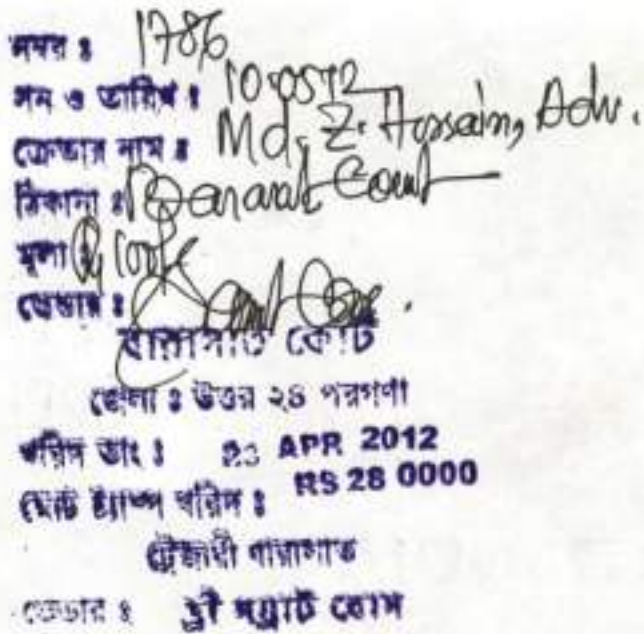 নম্বর ঃ 1786
সন ও তারিখ ঃ 10.05.12
ক্রেতার নাম ঃ Md. Z. Hossain, Adv.
ঠিকানা ঃ Barasat Court
মূল্য ঃ Rs 100/-
ভেন্ডার ঃ
বারাসাত কোর্ট
জেলা ঃ উত্তর ২৪ পরগণা
খরিদ তাং ঃ 23 APR 2012
মোট ষ্ট্যাম্প খরিদ ঃ RS 28 0000
ট্রেজারী বারাসাত
ভেন্ডার ঃ শ্রী সম্রাট বোস